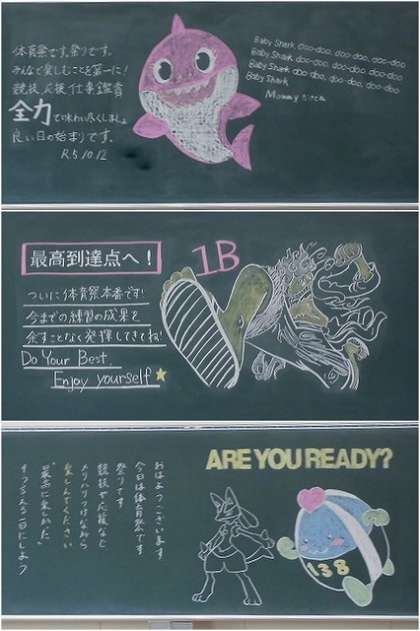 体育祭です。祭りです。
みんなで楽しむことを第一に!
競技 応援 仕事 鑑賞
全力で味わい尽くしましょ
良い日の始まりです。
R.5.10.12
Baby Shark doo-doo, doo-doo, doo-doo
Baby Shark doo-doo, doo-doo, doo-doo
Baby Shark doo-doo, doo-doo, doo-doo
Baby Shark
Mommy
最高到達点へ!
1B
ついに体育祭本番です!
今までの練習の成果を
余すことなく発揮してきてね!
Do Your Best
Enjoy yourself
ARE YOU READY?
おはようございます
今日は体育祭です
祭りです
競技や応援など
メリハリつけながら
楽しんでください
最高に楽しかった。
そう言える一日にしよう
138